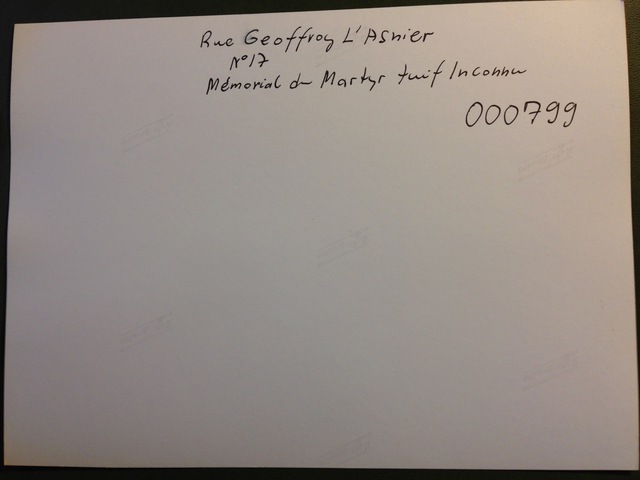 Rue Geoffroy L'Asnier
N°17
Mémorial du Martyr Juif Inconnu
000799